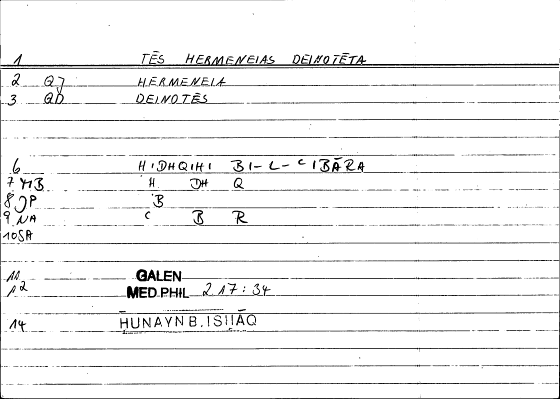 1 TĒS HERMENEIAS DEINOTĒTA
2 QJ HERMENEIA
3 QD DEINOTĒS
6 HIDHQIHI BI-L-CIBĀRA
7 MB H DH Q
8 JP B
9 NA C B R
10 SA
11 GALEN
12 MED.PHIL 2 17:34
14 HUNAYN B. ISHĀQ